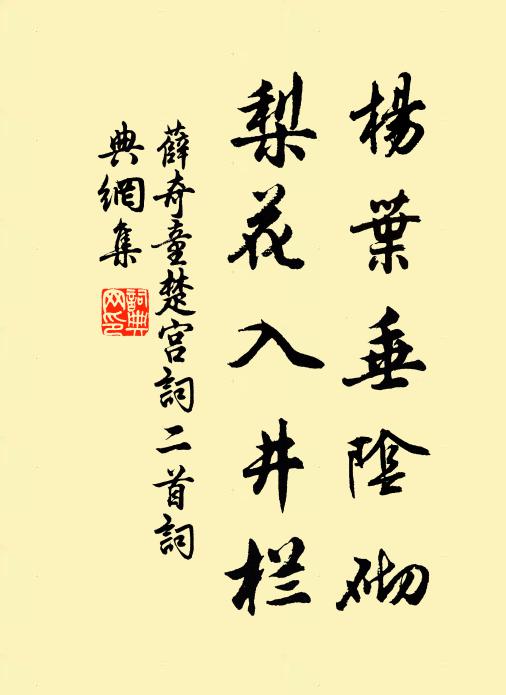 楊葉垂陰砌
梨花入井栏
薛奇童楚宫詞二首詞
典網集
詞典网印